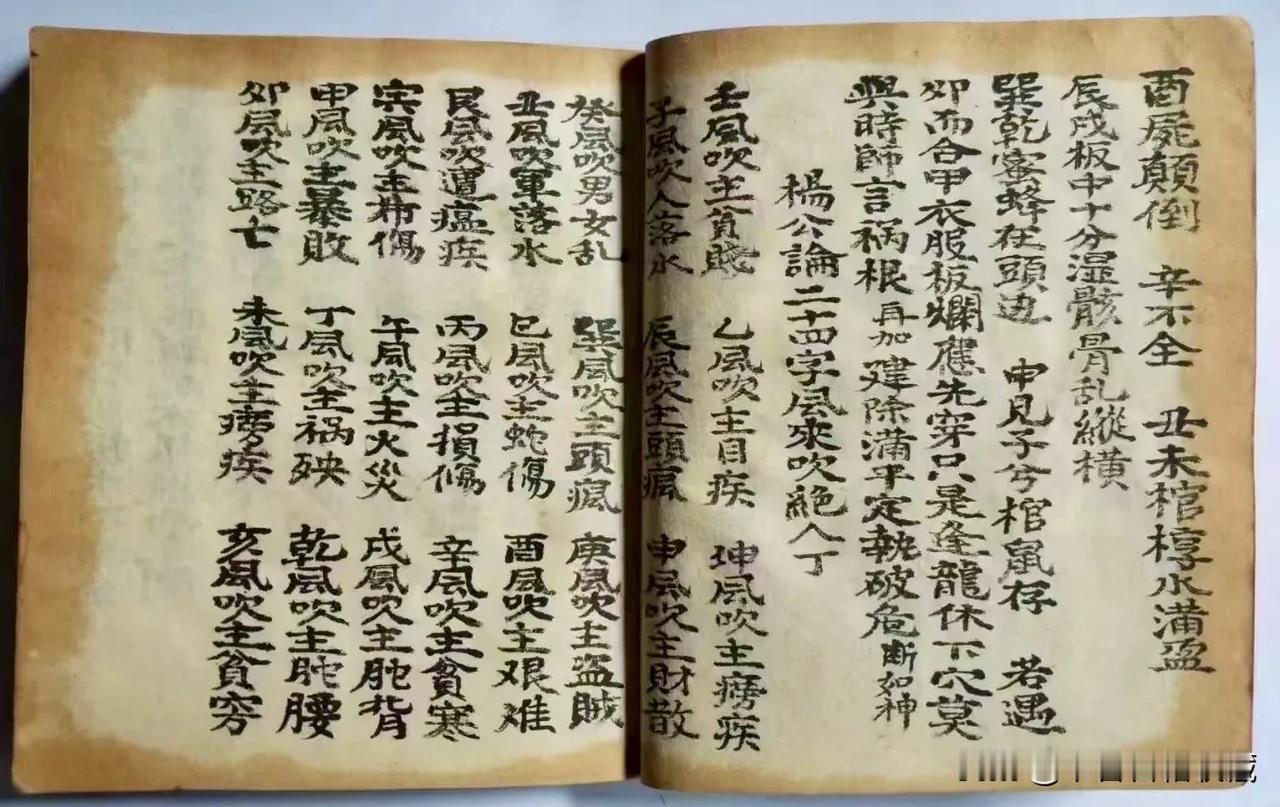 酉屍顛倒　辛不全　丑未棺椁水满盈
辰戌板中十分湿骸骨乱縱横
巽乾蜜蜂在頭边　申見子兮棺鼠存　若遇
夘而合甲衣服板爛應先穿只是逢龍休下穴莫
與時師言祸根再加建除满平定執破危断如神
楊公論二十四字風來吹絕人丁
壬風吹主貧賤　乙風吹主目疾　坤風吹主痨疾
子風吹人落水　辰風吹主頭瘋　申風吹主財散
癸風吹男女乱　巽風吹主頭瘋　庚風吹主盗賊
丑風吹軍落水　巳風吹主蛇傷　酉風吹主艰难
艮風吹遭瘟疾　丙風吹主損傷　辛風吹主貧寒
寅風吹主布傷　午風吹主火災　戌風吹主肫背
甲風吹主暴敗　丁風吹主祸殃　乾風吹主肫腰
夘風吹主路亡　未風吹主痨疾　亥風吹主貧穷